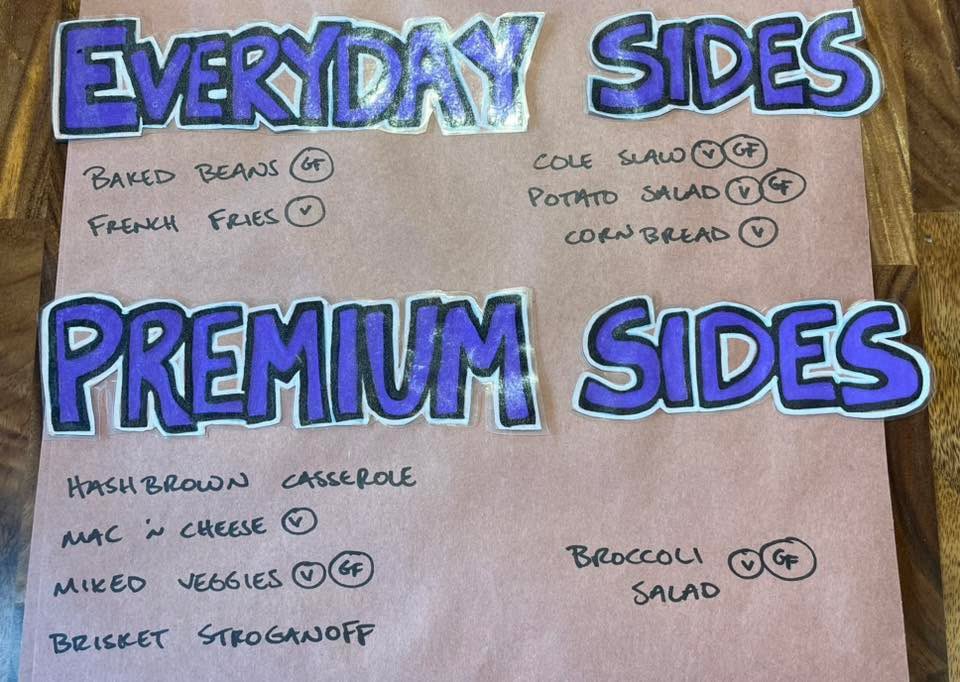 EVERYDAY SIDES
BAKED BEANS GF
FRENCH FRIES V
COLE SLAW V GF
POTATO SALAD V GF
CORNBREAD V
PREMIUM SIDES
HASHBROWN CASSEROLE
MAC 'N CHEESE V
MIXED VEGGIES V GF
BRISKET STROGANOFF
BROCCOLI V GF
SALAD